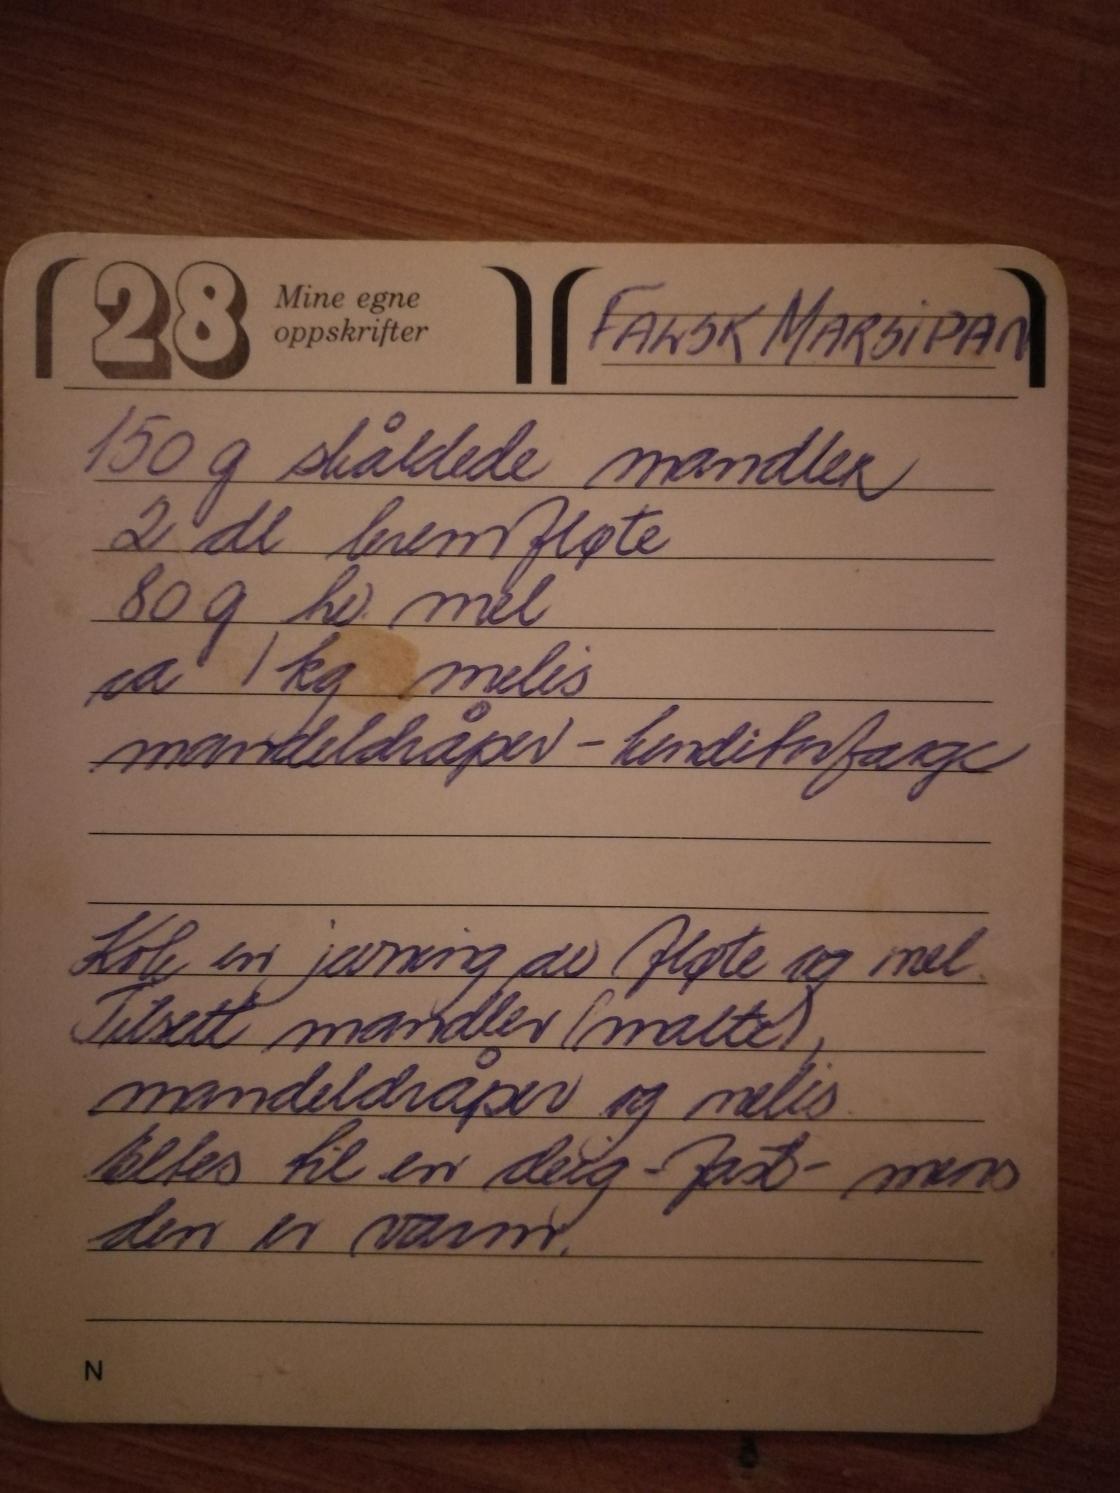 28
Mine egne
oppskrifter
FALSK MARSIPAN
150 g skåldede mandler
2 dl kremfløte
80 g hv. mel
ca 1 kg melis
mandeldråper - konditorfarge
Kok en jevning av fløte og mel.
Tilsett mandler (malte),
mandeldråper og melis.
Eltes til en deig - fast - mens
den er varm.
N